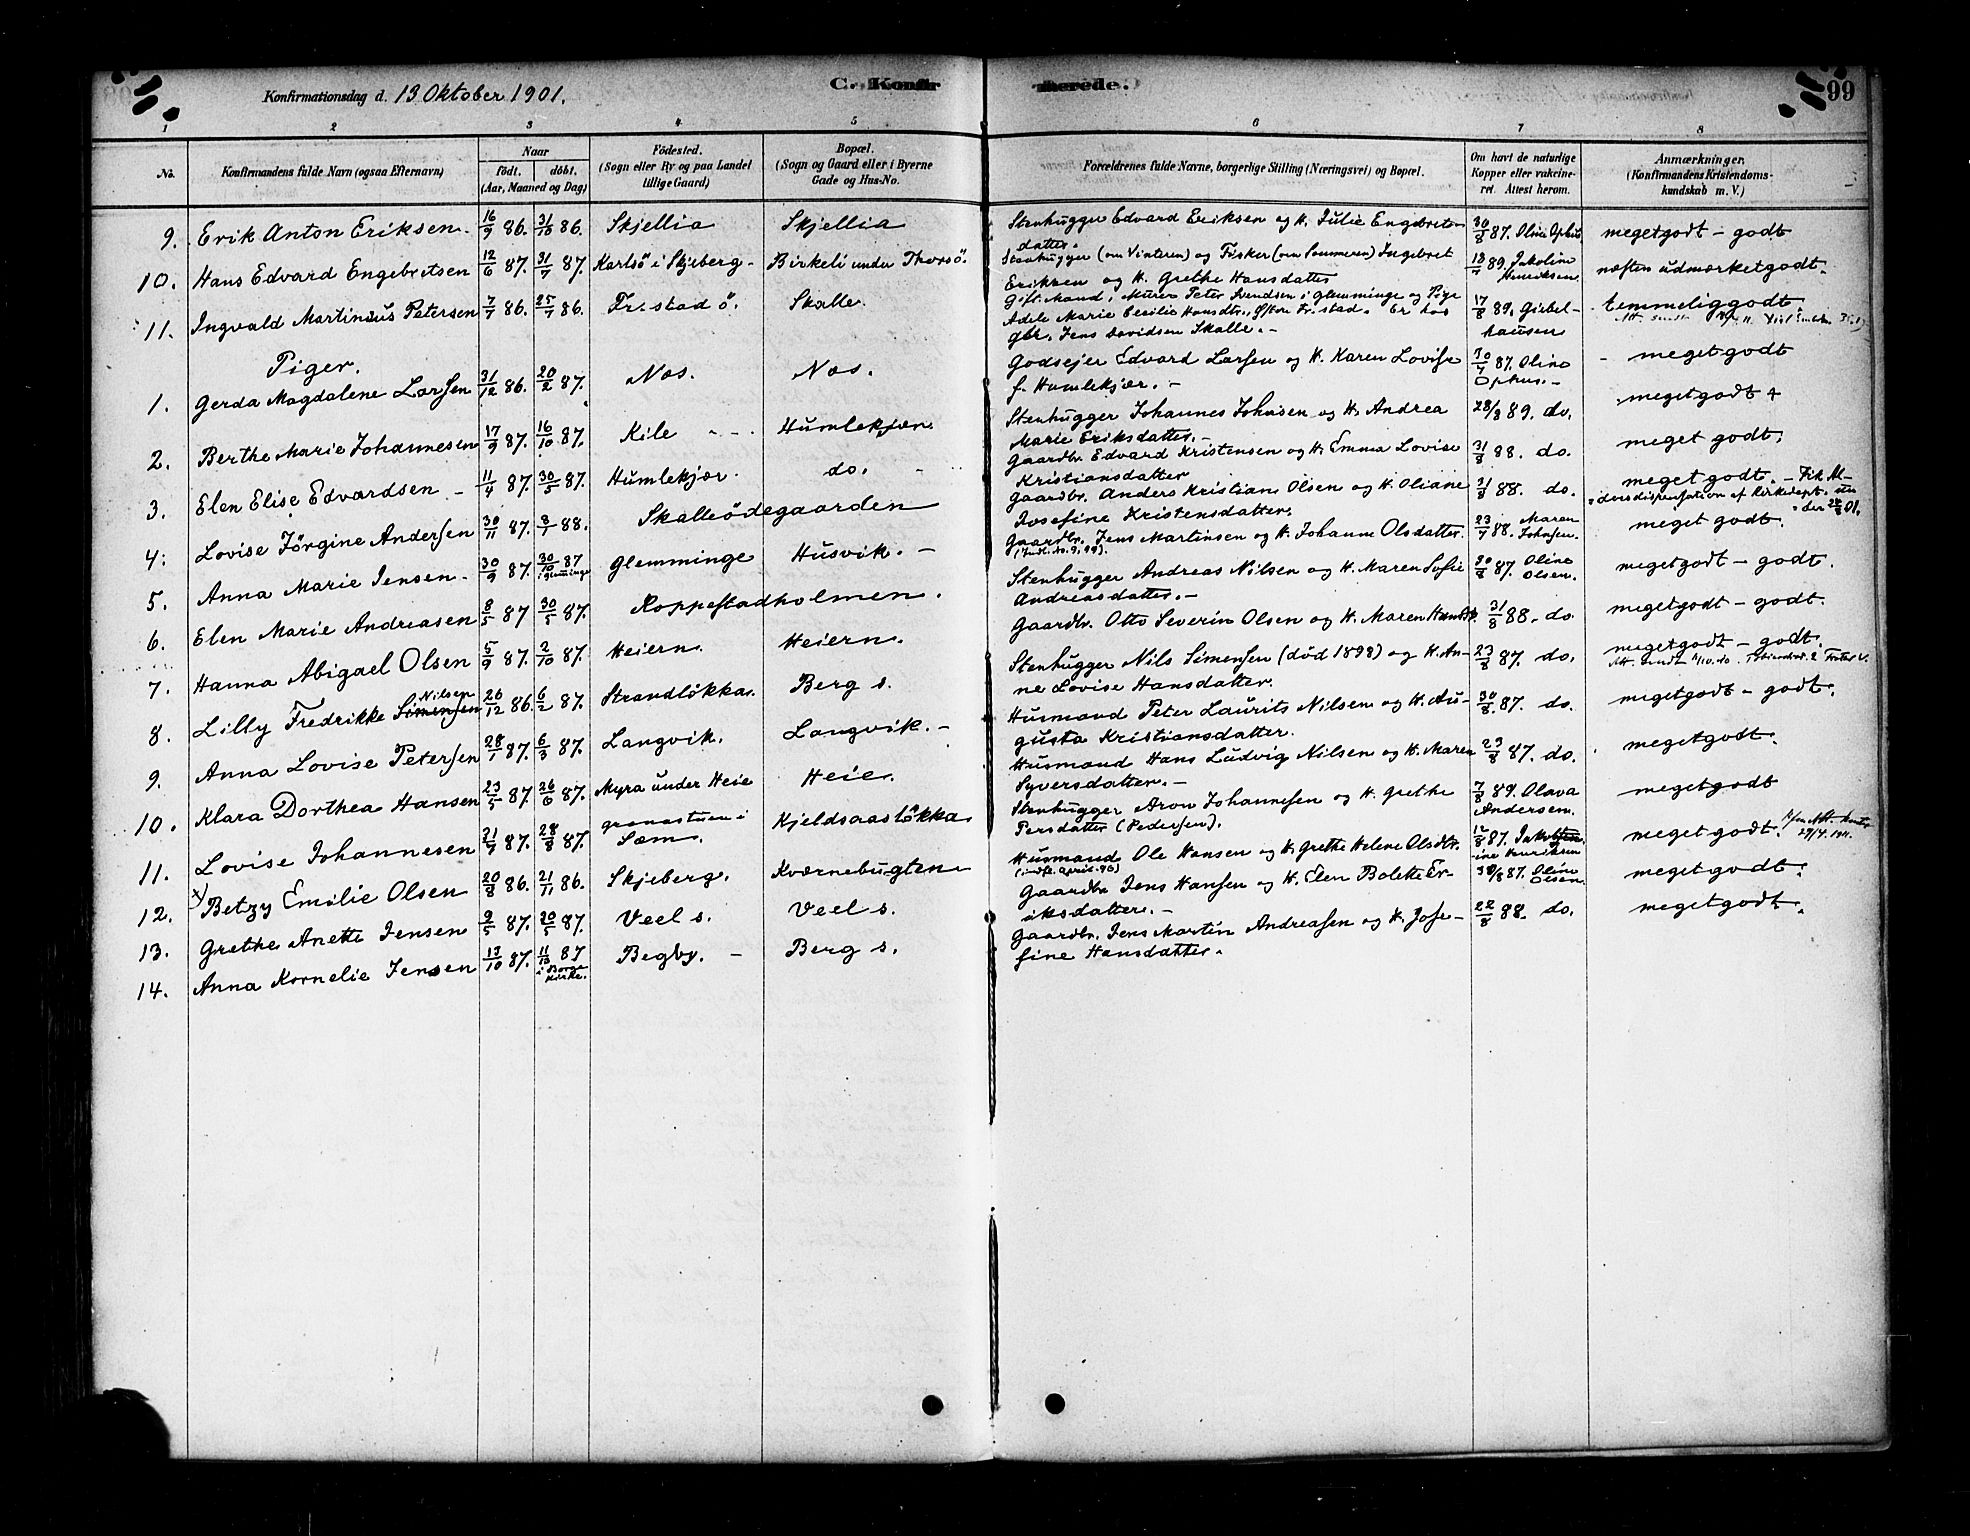 Konfirmationsdag d. 13 Oktober 1901.
C. Konfir
merede.
99
1 2 3 4 5 6 7 8
No.
Konfirmandens fulde Navn (ogsaa Efternavn)
Naar
født. døbt.
(Aar, Maaned og Dag)
Fødested.
(Sogn eller By og paa Landet
tillige Gaard)
Bopæl.
(Sogn og Gaard eller i Byerne
Gade og Hus-No.
Forældrenes fulde Navne, borgerlige Stilling (Næringsvei) og Bopæl.
Om havt de naturlige
Kopper eller vakcine-
ret. Attest herom.
Anmærkninger.
(Konfirmandens Kristendoms-
kundskab m. V.)
9. Erik Anton Eriksen. 16/9 86. 31/10 86. Skjellia Skjellia Stenhugger Edvard Eriksen og H. Julie Engebrets-
datter. 30/8 87. Oline Ophus meget godt - godt
10. Hans Edvard Engebretsen 12/6 87. 31/7 87. Karlsö i Skjeberg - Birkeli under Thorsö. Stenhugger (om Vinteren) og Fisker (om Sommeren) Ingebret
Eriksen og H. Grethe Hansdatter 18/7 89. Jakoline
Henriksen næsten udmærketgodt.
11. Ingvald Martinius Petersen 7/7 86. 25/7 86. Fr.stad ö. Skalle. Gift Mand i Murer Peter Svendsen i Glemminge og Pige
Adele Marie Cecilie Hansdtr., Östre Fr.stad. Er hos
gbr. Jens Davidsen Skalle. - 17/8 89. Giebel-
hausen temmeliggodt.
Piger.
1. Gerda Magdalene Larsen 31/12 86. 20/2 87. Næs. Næs. Godsejer Edvard Larsen og H. Karen Lovise
f. Humlekjær. - 30/7 87. Oline
Ophus. - meget godt
2. Berthe Marie Johannesen 17/9 87. 16/10 87. Kile Humlekjær. Stenhugger Johannes Johnsen og H. Andrea
Marie Eriksdatter. - 28/8 89. do. meget godt
3. Elen Elise Edvardsen - 11/4 87. 30/5 87. Humlekjær. do. Gaardbr. Edvard Kristensen og H. Emma Lovise
Kristiansdatter 31/8 88. do. meget godt.
4. Lovise Jörgine Andersen 30/11 87. 8/1 88. Skalleödegaarden Gaardbr. Anders Kristian Olsen og H. Oliane
Josefine Kristensdatter. 31/8 88. do. meget godt. - Fik Al-
dersdispensation af Kirkedept.
5. Anna Marie Jensen. 30/9 87. 30/10 87
i Glemminge Glemminge Husvik. - Gaardbr. Jens Martinsen og H. Johanne Olsdatter.
23/7 88. Maren
Johnsen. meget godt.
6. Elen Marie Andreasen 8/5 87 30/5 87. Roppestadholmen. Stenhugger Andreas Nilsen og H. Maren Sofie
Andreasdatter. - 30/8 87. Oline
Olsen. meget godt - godt.
7. Hanna Abigael Olsen 5/9 87. 2/10 87. Heiern. Heiern. Gaardbr. Otto Severin Olsen og H. Maren Hansdtr. 31/8 88. do. meget godt - godt.
8. Lilly Fredrikke Simensen Nilsen 26/12 86. 6/2 87. Strandlökka. Berg s. Stenhugger Nils Simensen (död 1898) og H. An-
ne Lovise Hansdatter. 23/8 87. do. meget godt - godt.
9. Anna Lovise Petersen 28/1 87. 6/3 87. Langvik. Langvik. - Husmand Peter Laurits Nilsen og H. Au-
gusta Kristiansdatter. 30/8. 87. do. meget godt - godt.
10. Klara Dorthea Hansen 23/5 87. 26/6 87. Myra under Heie Heie. Husmand Hans Ludvig Nilsen og H. Maren
Syversdatter. - 23/8 87. do. meget godt.
11. Lovise Johannesen 21/7 87. 28/8 87. granastuen i
Sæm. Kjeldsaaslökka Stenhugger Aron Johannesen og H. Grethe
Persdatter (Pedersen). 7/8 89. Olava
Andersen. meget godt
12. Betzy Emilie Olsen 20/8 86. 21/11 86. Skjeberg. Kværnebugten Husmand Ole Hansen og H. Grethe Helene Olsdtr.
(indfl. april. 96) meget godt.
13. Grethe Anette Jensen 9/5 87. 20/5 87. Veel s. Veel s. Gaardbr. Jens Hansen og H. Elen Bolette Er-
iksdatter. - 30/8 87. Oline
Olsen. meget godt.
14. Anna Kornelie Jensen 13/10 87. 11/12 87
i Borge
Kirke. Begby. - Berg s. Gaardbr. Jens Martin Andreassen og H. Jose-
fine Hansdatter. 22/8 88. do. meget godt.